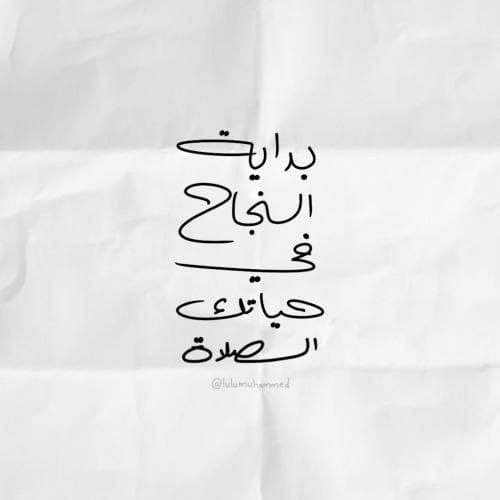 بداية
النجاح
في
حياتك
الصلاة
@lulumuhammed